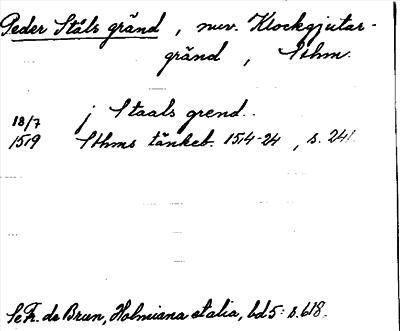 Peder Ståls gränd, nuv. Klockgjutar-
gränd, Sthm.
18/7
1519
j Staals grend..
Sthms tänkeb. 1514-24, s. 241.
Se Fr. de Brun, Holmiana et alia, bd 5: s. 618.